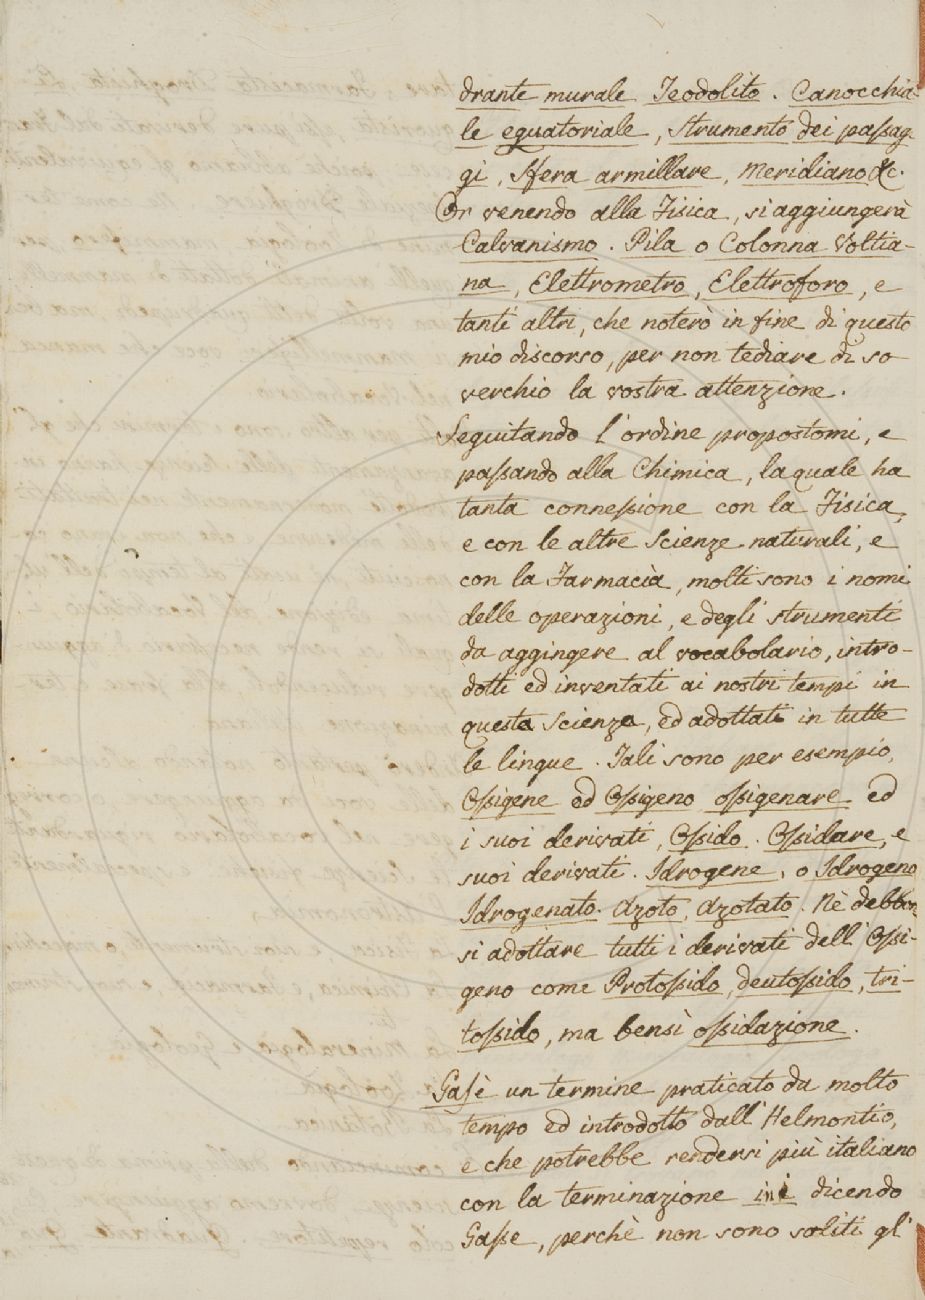 drante murale Teodolito. Canocchia-
le equatoriale, strumento dei passag-
gi, sfera armillare, meridiano &c.
Or venendo alla Fisica, si aggiungerà
Galvanismo. Pila o Colonna Voltia-
na, Elettrometro, Elettroforo, e
tanti altri, che noterò in fine di questo
mio discorso, per non tediare di so
verchio la vostra attenzione.
Seguitando l'ordine propostomi, e
passando alla Chimica, la quale ha
tanta connessione con la Fisica,
e con le altre Scienze naturali, e
con la Farmacia, molti sono i nomi
delle operazioni, e degli strumenti
da aggingere al vocabolario, intro-
dotti ed inventati ai nostri tempi in
questa Scienza, ed adottati in tutte
le lingue. Tali sono per esempio,
Ossigene ed Ossigeno ossigenare ed
i suoi derivati, Ossido. Ossidare, e
suoi derivati. Idrogene, o Idrogeno
Idrogenato. Azoto, Azotato. Nè debbon
si adottare tutti i derivati dell'Ossi-
geno come Protossido, deutossido, tri-
tossido, ma bensì ossidazione.
Gas è un termine praticato da molto
tempo ed introdotto dall'Helmontio,
e che potrebbe rendersi più italiano
con la terminazione in dicendo
Gasse, perchè non sono soliti gl'